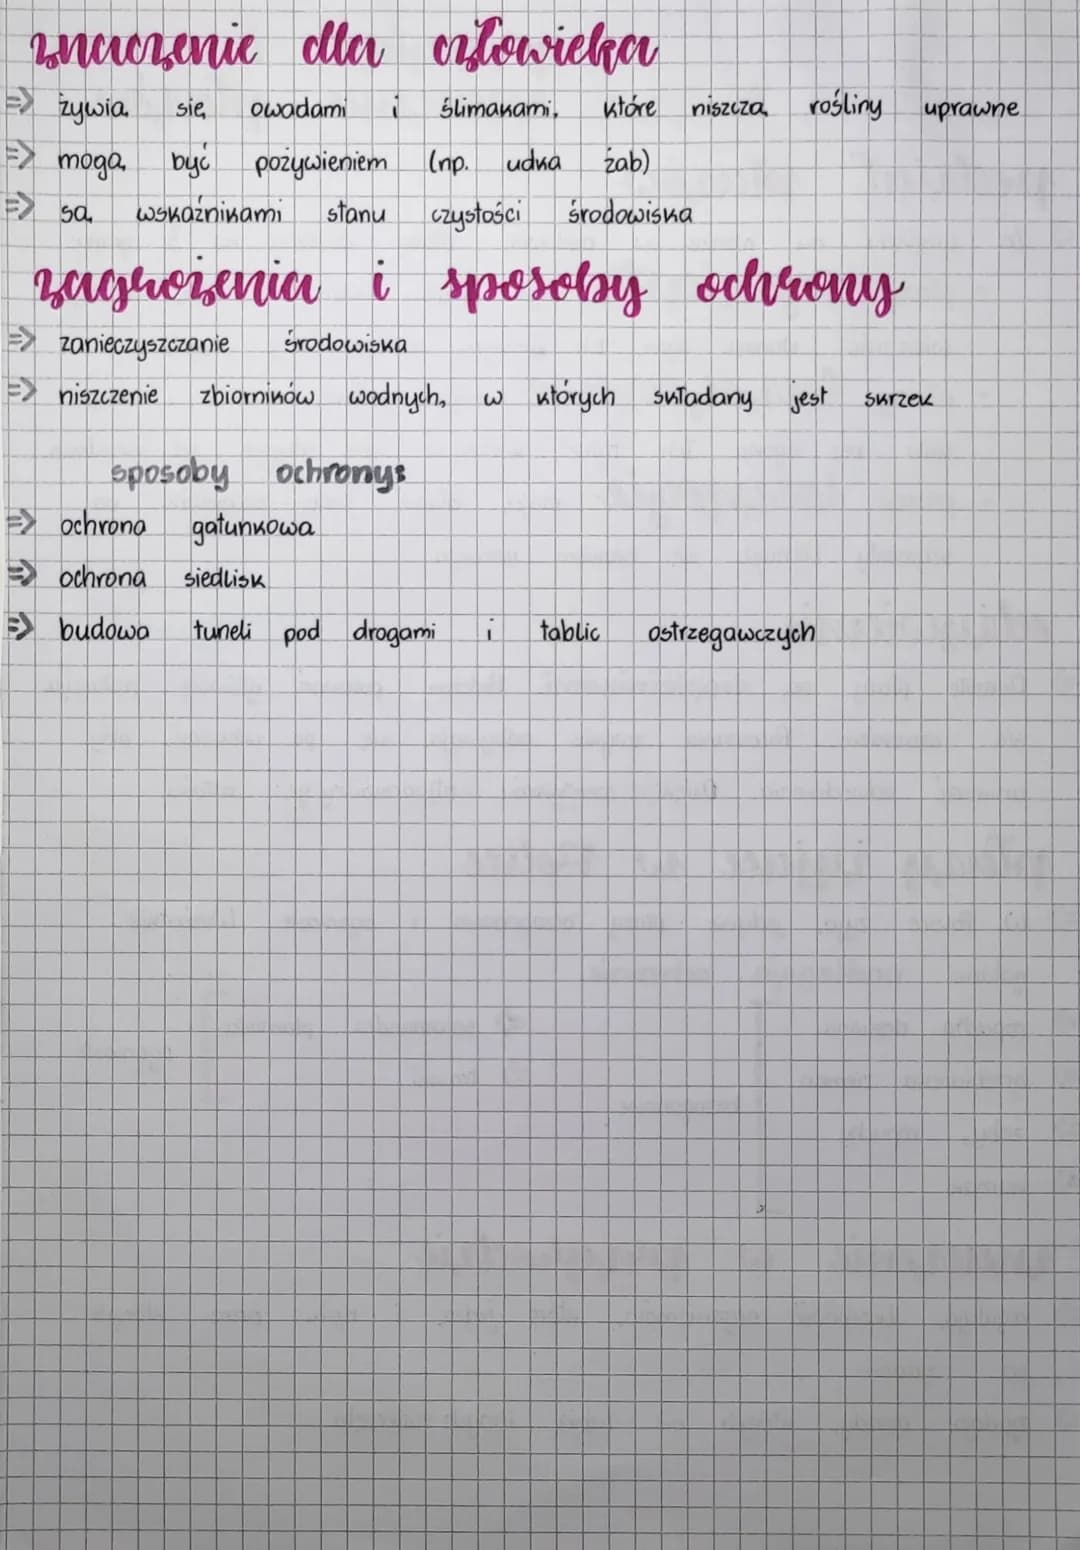 znaczenie dla człowieka
=> żywią się owadami i ślimakami, które niszczą rośliny uprawne
=> mogą być pożywieniem (np. udka żab)
=> są wskaźnikami stanu czystości środowiska
zagrożenia i sposoby ochrony
=> zanieczyszczanie środowiska
=> niszczenie zbiorników wodnych, w których składany jest skrzek
sposoby ochrony:
=> ochrona gatunkowa
=> ochrona siedlisk
=> budowa tuneli pod drogami i tablic ostrzegawczych